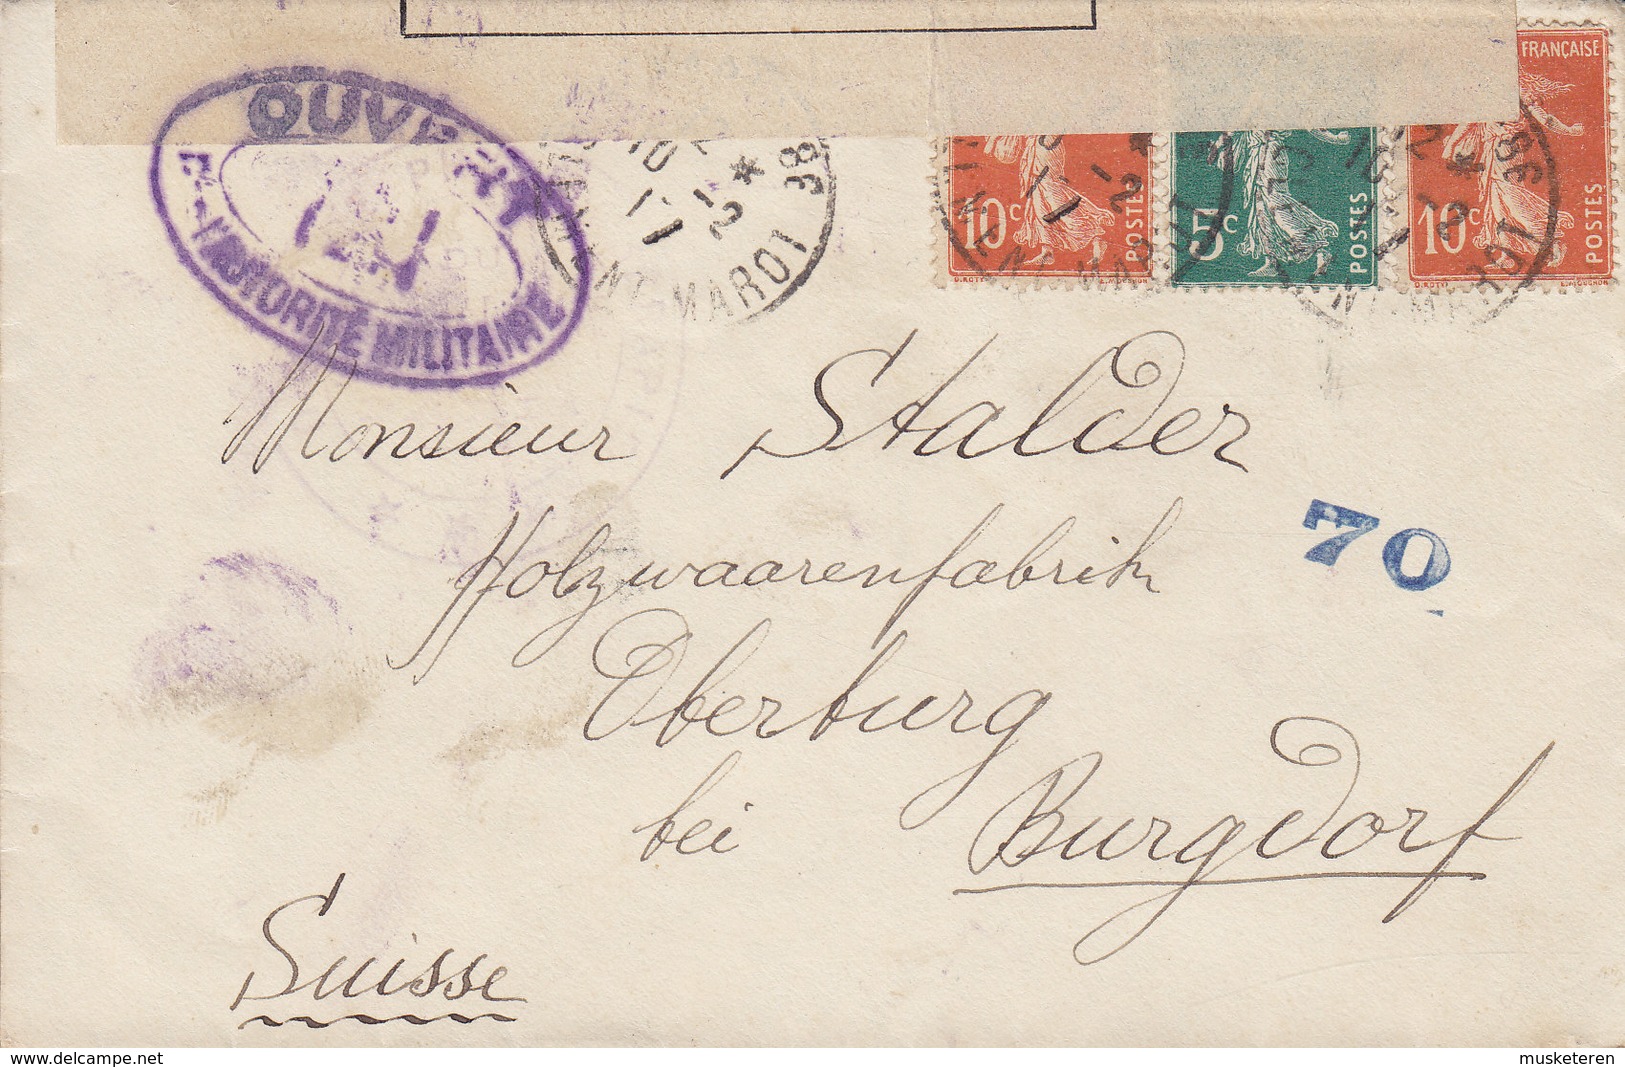 OUVERT
PAR L'AUTORITÉ MILITAIRE
38
FRANÇAISE
10c POSTES
5c POSTES
10c POSTES
Monsieur Stalder
Holzwaarenfabrik
70
Oberburg
bei Burgdorf
Suisse
www.delcampe.net
musketeren